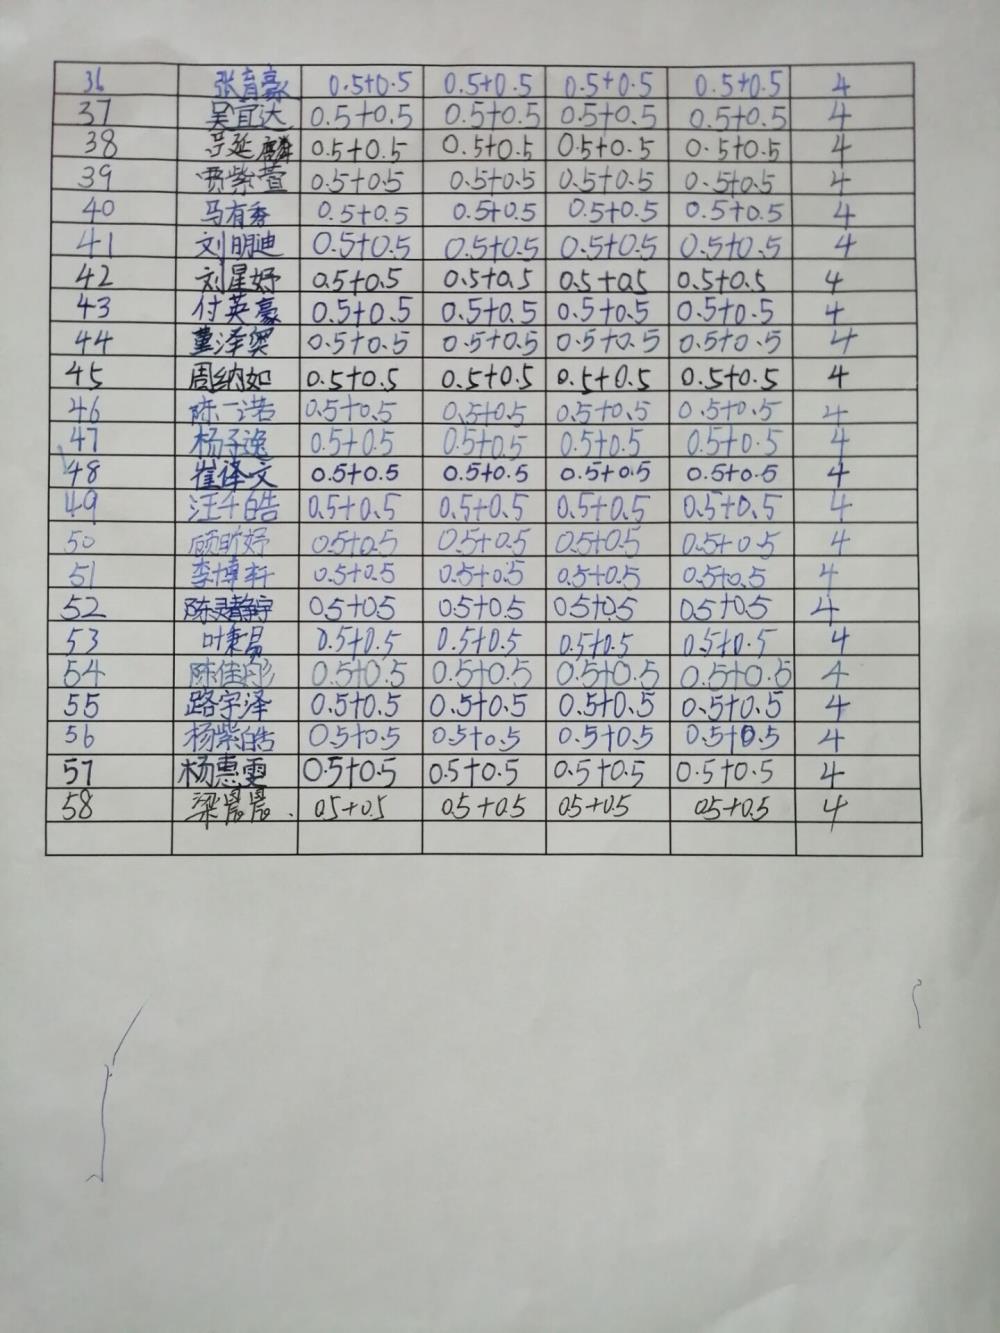 36 张育豪 0.5+0.5 0.5+0.5 0.5+0.5 0.5+0.5 4
37 吴宜达 0.5+0.5 0.5+0.5 0.5+0.5 0.5+0.5 4
38 延麟 0.5+0.5 0.5+0.5 0.5+0.5 0.5+0.5 4
39 贾紫萱 0.5+0.5 0.5+0.5 0.5+0.5 0.5+0.5 4
40 马有秀 0.5+0.5 0.5+0.5 0.5+0.5 0.5+0.5 4
41 刘明迪 0.5+0.5 0.5+0.5 0.5+0.5 0.5+0.5 4
42 刘星妤 0.5+0.5 0.5+0.5 0.5+0.5 0.5+0.5 4
43 付英豪 0.5+0.5 0.5+0.5 0.5+0.5 0.5+0.5 4
44 董泽奥 0.5+0.5 0.5+0.5 0.5+0.5 0.5+0.5 4
45 周纳如 0.5+0.5 0.5+0.5 0.5+0.5 0.5+0.5 4
46 陈一诺 0.5+0.5 0.5+0.5 0.5+0.5 0.5+0.5 4
47 杨子逸 0.5+0.5 0.5+0.5 0.5+0.5 0.5+0.5 4
48 崔译文 0.5+0.5 0.5+0.5 0.5+0.5 0.5+0.5 4
49 汪千皓 0.5+0.5 0.5+0.5 0.5+0.5 0.5+0.5 4
50 顾昕妤 0.5+0.5 0.5+0.5 0.5+0.5 0.5+0.5 4
51 李博轩 0.5+0.5 0.5+0.5 0.5+0.5 0.5+0.5 4
52 陈灵静宇 0.5+0.5 0.5+0.5 0.5+0.5 0.5+0.5 4
53 叶秉易 0.5+0.5 0.5+0.5 0.5+0.5 0.5+0.5 4
54 陈佳彤 0.5+0.5 0.5+0.5 0.5+0.5 0.5+0.5 4
55 路宇泽 0.5+0.5 0.5+0.5 0.5+0.5 0.5+0.5 4
56 杨紫皓 0.5+0.5 0.5+0.5 0.5+0.5 0.5+0.5 4
57 杨惠雯 0.5+0.5 0.5+0.5 0.5+0.5 0.5+0.5 4
58 梁晨晨. 0.5+0.5 0.5+0.5 0.5+0.5 0.5+0.5 4